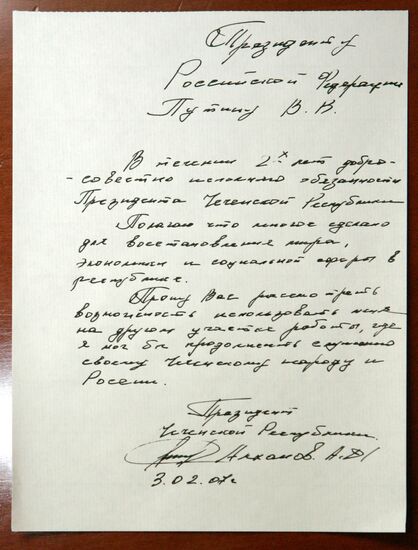 Президенту
Российской Федерации
Путину В. В.
В течении 2х лет добро-
-совестно исполняю обязанности
Президента Чеченской Республики
Полагаю что многое сделано
для восстановления мира,
экономики и социальной сферы в
республике.
Прошу Вас рассмотреть
возможность использовать меня
на другом участке работы, где
я мог бы продолжить служению
своему Чеченскому народу и
России.
Президент
Чеченской Республики
Алханов. А.Д